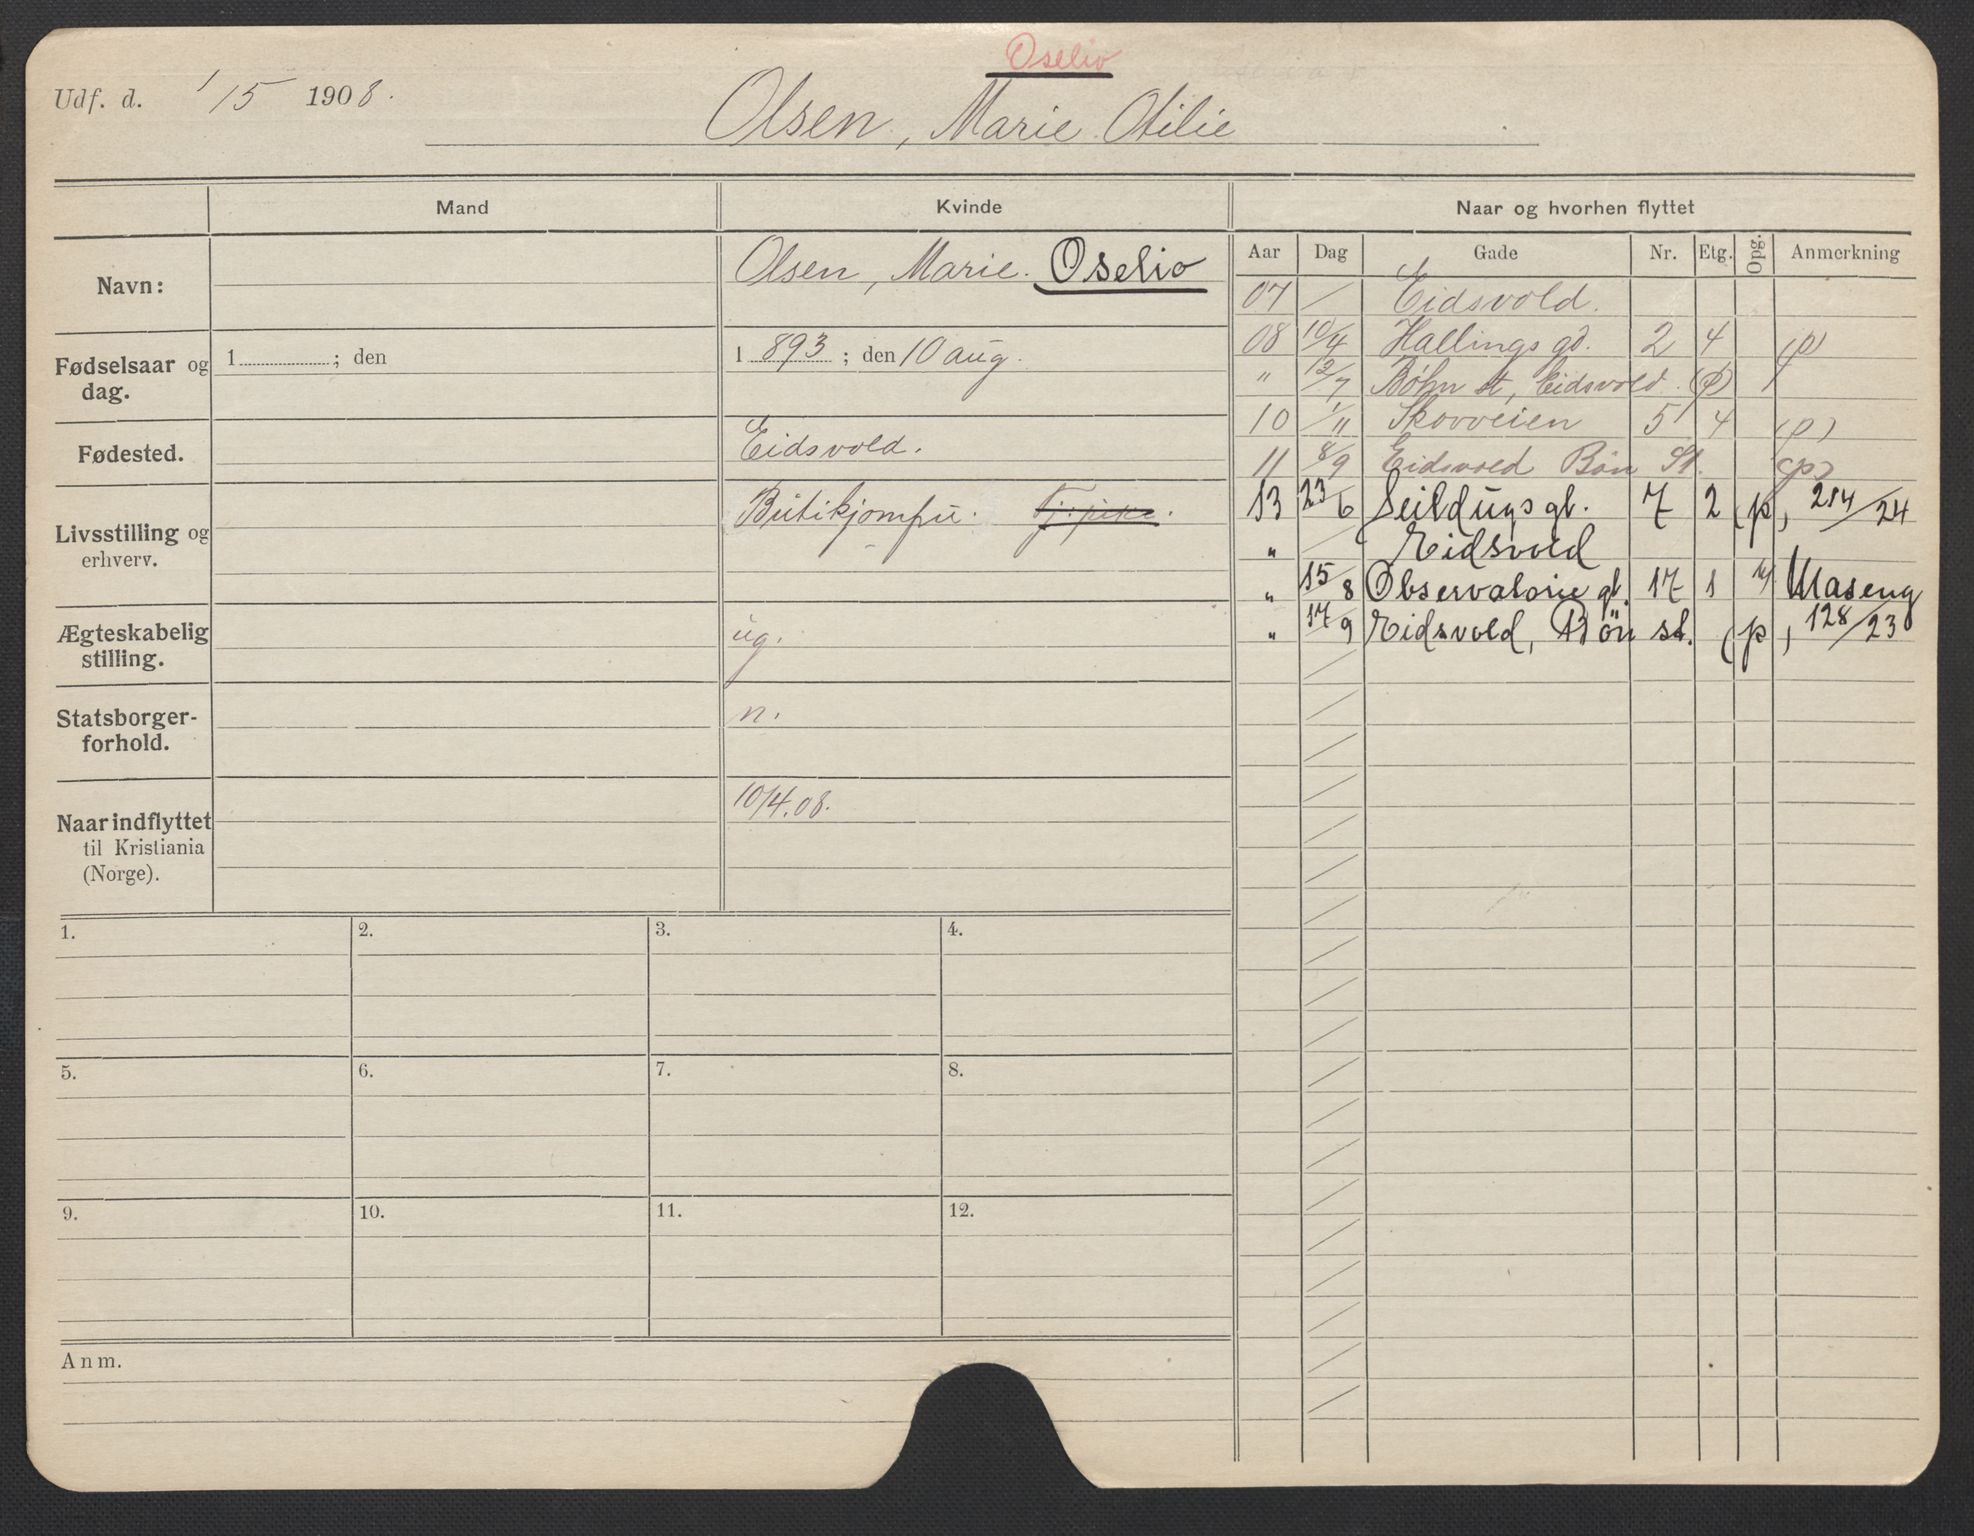 Oselio
Udf. d. 1/5 1908.
Olsen, Marie Otilie
Mand
Kvinde
Naar og hvorhen flyttet
Navn:
Olsen, Marie. Oselio
Fødselsaar og dag.
1 ; den
1893 ; den 10 aug.
Fødested.
Eidsvold.
Livsstilling og erhverv.
Butikjomfru. Tj.pike.
Ægteskabelig stilling.
ug.
Statsborger-forhold.
n.
Naar indflyttet til Kristiania (Norge).
10/4.08.
Aar Dag Gade Nr. Etg. Opg. Anmerkning
07 Eidsvold.
08 10/4 Hallings gd. 2 4 (p)
" 12/7 Bøhn st, Eidsvold. (p)
10 1/11 Skovveien 5 4 (p)
11 8/9 Eidsvold Bøn St. (p)
13 23/6 Seildugs gt. 7 2 (p, 214/24
" Eidsvold
" 15/8 Observatorie gt. 17 1 Maseng
" 17/9 Eidsvold, Bön st. (p, 128/23
1. 2. 3. 4.
5. 6. 7. 8.
9. 10. 11. 12.
Anm.